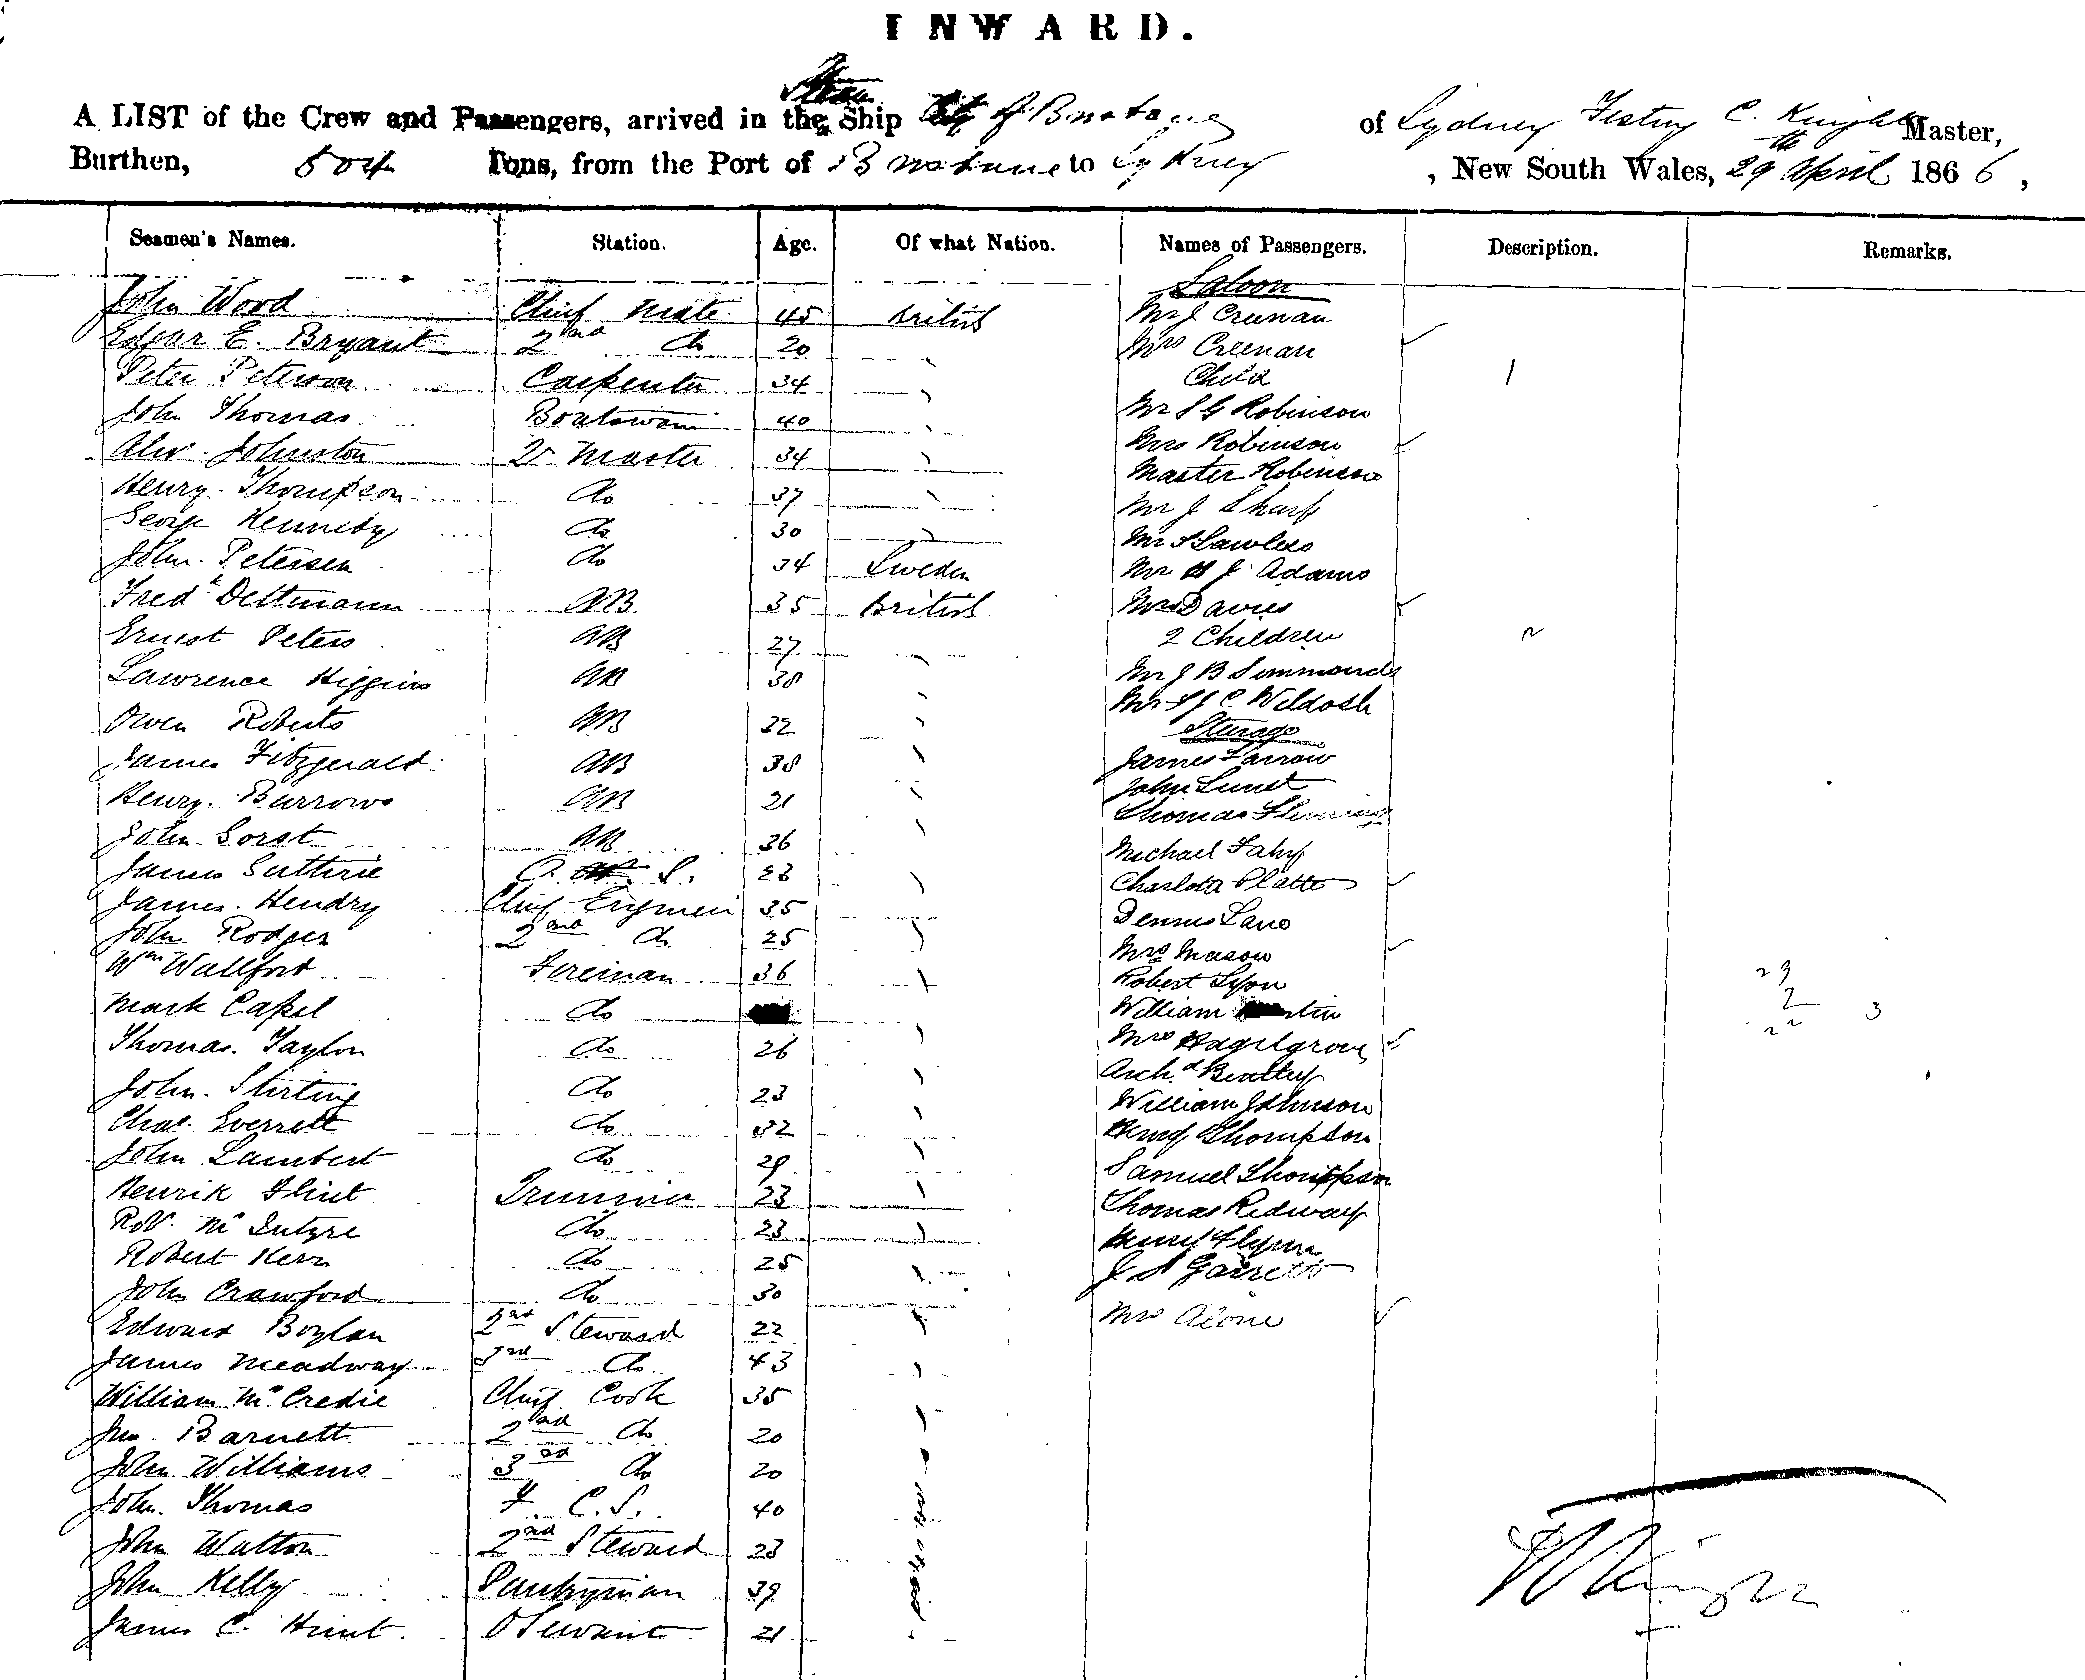 INWARD.
Steam
A LIST of the Crew and Passengers, arrived in the Ship City of Brisbane of Sydney C. Knight Master,
Burthen, 504 Tons, from the Port of Brisbane to Sydney, New South Wales, 29th April 1866,
Seamen's Names. Station. Age. Of what Nation. Names of Passengers. Description. Remarks.
Saloon
John Wood Chief Mate 45 British Mr J Creenan
Edgar E. Bryant 2nd do 20 Mrs Creenan
Peter Peterson Carpenter 34 Child 1
John Thomas Boatswain 40 Mr S G Robinson
Alexr Johnston Qr Master 34 Mrs Robinson
Master Robinson
Henry Thompson do 37 Mr J Sharp
George Kennedy do 30 Mr S Lawless
John Petersen do 34 Sweden Mr J Adams
Fredk Dettmann AB 35 British Mrs Davies
Ernest Peters AB 27 2 Children 2
Lawrence Higgins AB 38 Mr J B Simmonds
Owen Roberts AB 22 Mr C
Steerage
James Fitzgerald AB 38 James Farrow
Henry Burrows AB 21 John Lund
Thomas
John Sorst AB 36 Michael Fahy
James Guthrie O. S. 23 Charlotta Platt
James Hendry Chief Engineer 35 Dennis Lane
John Rodger 2nd do 25 Mrs Mason
Wm Wallford Fireman 36 Robert Lyon 29
Mark Capel do William 2 3
Thomas Taylor do 26 Mrs Hagelgrove
John Stirling do 23 Archd
William Johnson
Chas Everrett do 32 Henry Thompson
John Lambert do 29 Samuel Thompson
Henrik Flint Trimmer 23 Thomas Ridway
Robt McIntyre do 23 Henry Flynn
Robert Kerr do 25 J A Garrett
John Crawford do 30 Mrs
Edward Boylan 2nd Steward 22
James Meadway 3rd do 43
William McCredie Chief Cook 35
Jno Barnett 2nd do 20
John Williams 3rd do 20
John Thomas F. C. S. 40
John Watton 2nd Steward 23
John Kelly Pantryman 39
James C. Hunt O Servant 21
Knight